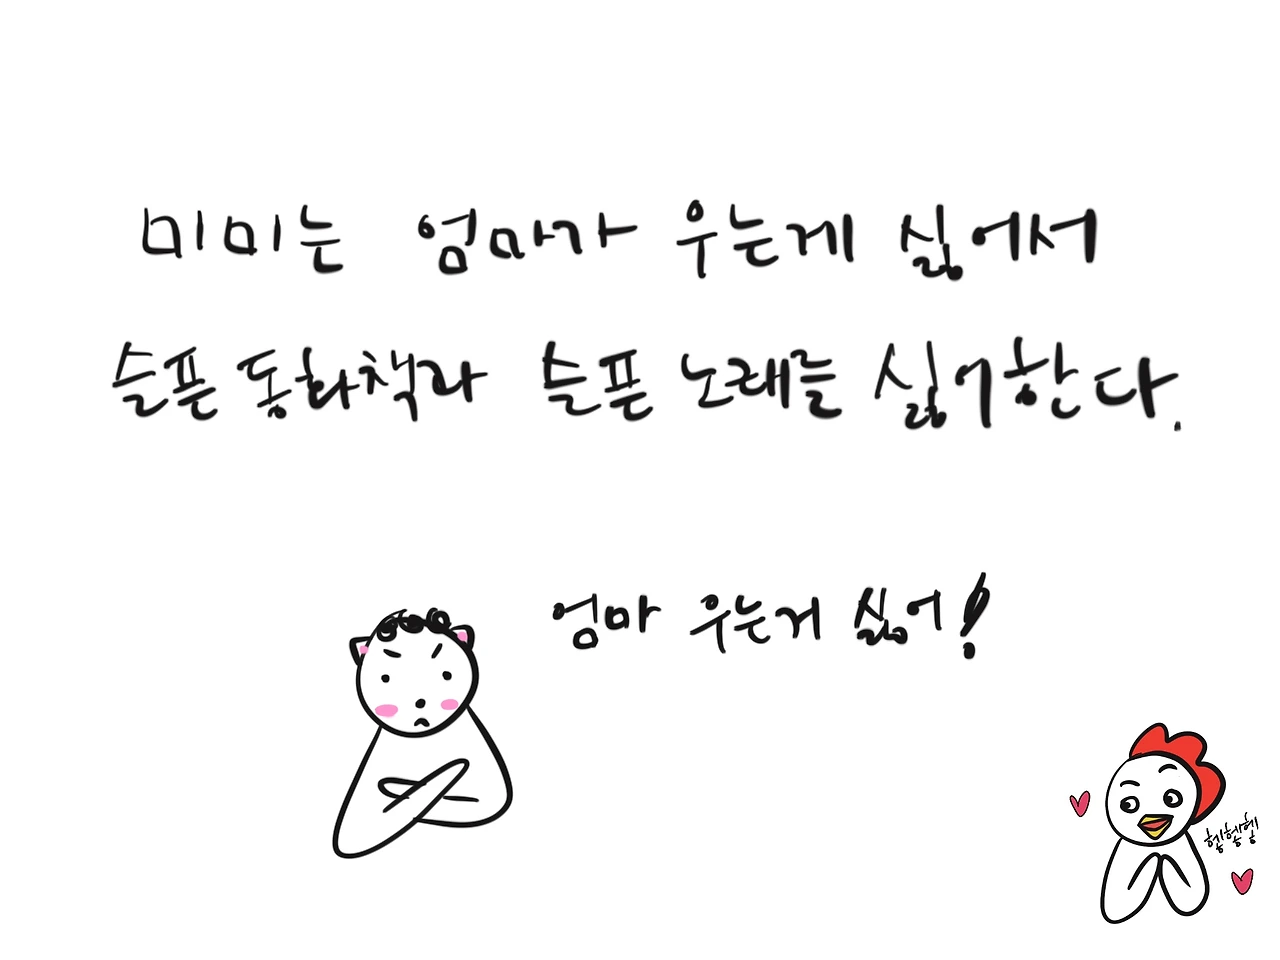 미미는 엄마가 우는게 싫어서
슬픈 동화책과 슬픈 노래를 싫어한다.
엄마 우는거 싫어!
헿헿헿